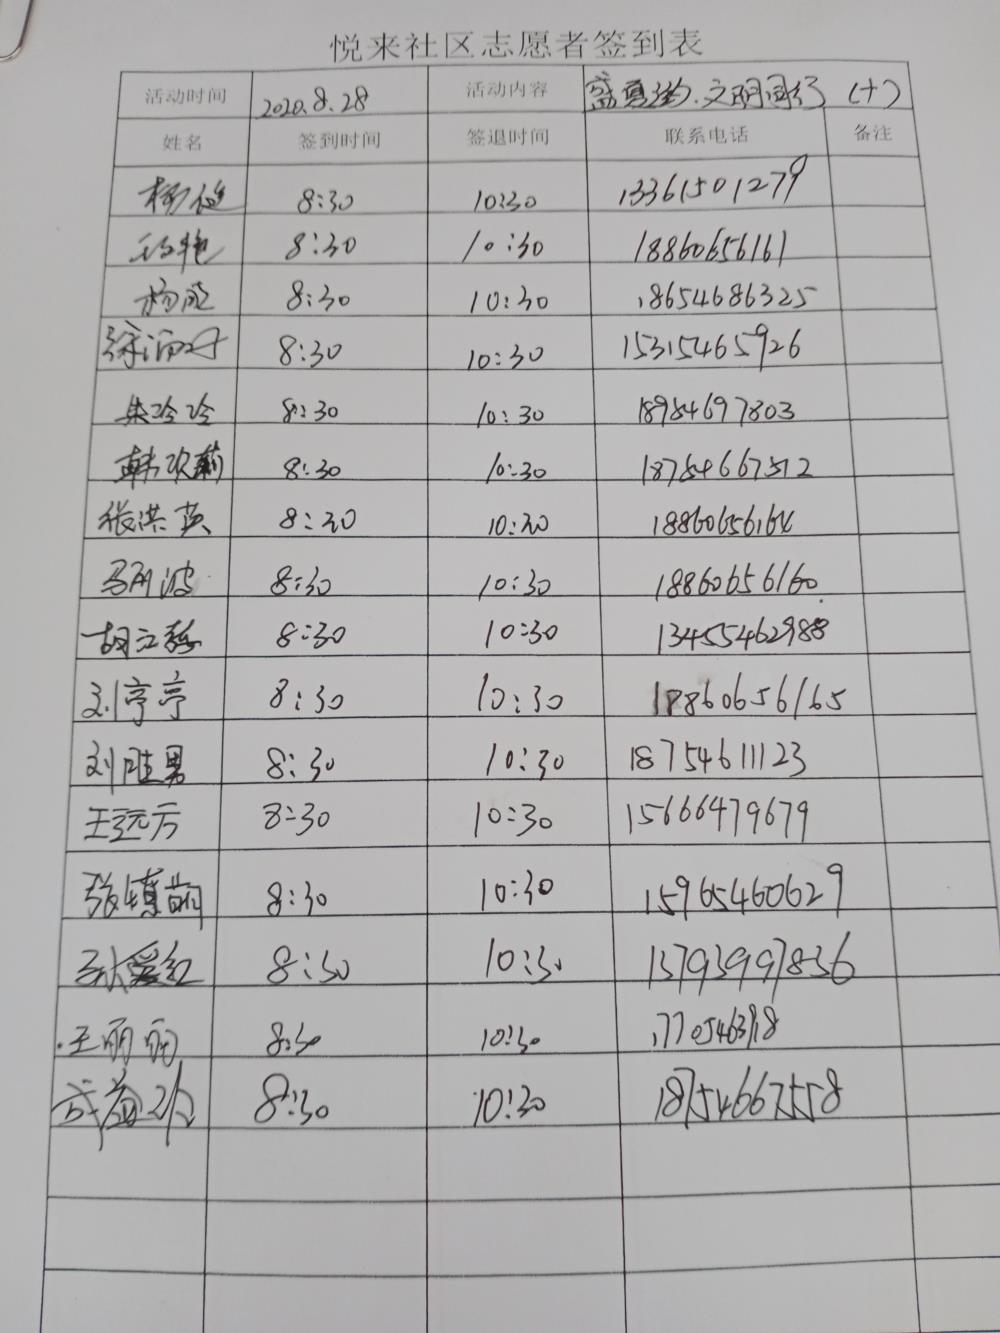 悦来社区志愿者签到表
活动时间 2020.8.28 活动内容 文明同行 (十)
姓名 签到时间 签退时间 联系电话 备注
杨 8:30 10:30 13361501279
艳 8:30 10:30 18860656161
杨 8:30 10:30 18654686325
徐 8:30 10:30 15315465926
朱玲玲 8:30 10:30 18954697803
韩欢 8:30 10:30 18754667512
张洪英 8:30 10:30 18860656164
马丽波 8:30 10:30 18860656160
胡立 8:30 10:30 13455462988
刘亭亭 8:30 10:30 18860656165
刘胜男 8:30 10:30 18754611123
王远方 8:30 10:30 15666479679
张 8:30 10:30 15965460629
孙爱红 8:30 10:30 13793997836
王丽丽 8:30 10:30
8:30 10:30 18754667558